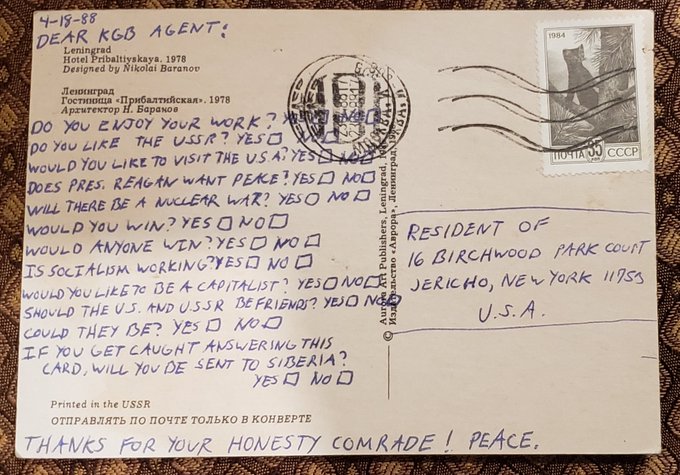 4-18-88
DEAR KGB AGENT:
Leningrad
Hotel Pribaltiyskaya. 1978
Designed by Nikolai Baranov
Ленинград
Гостиница «Прибалтийская». 1978
Архитектор Н. Баранов
DO YOU ENJOY YOUR WORK? YES □ NO □
DO YOU LIKE THE USSR? YES □ NO □
WOULD YOU LIKE TO VISIT THE U.S.A? YES □ NO □
DOES PRES. REAGAN WANT PEACE? YES □ NO □
WILL THERE BE A NUCLEAR WAR? YES □ NO □
WOULD YOU WIN? YES □ NO □
WOULD ANYONE WIN? YES □ NO □
IS SOCIALISM WORKING? YES □ NO □
WOULD YOU LIKE TO BE A CAPITALIST? YES □ NO □
SHOULD THE U.S. AND U.S.S.R BE FRIENDS? YES □ NO □
COULD THEY BE? YES □ NO □
IF YOU GET CAUGHT ANSWERING THIS
CARD, WILL YOU BE SENT TO SIBERIA?
YES □ NO □
Printed in the USSR
ОТПРАВЛЯТЬ ПО ПОЧТЕ ТОЛЬКО В КОНВЕРТЕ
THANKS FOR YOUR HONESTY COMRADE! PEACE.
© Aurora Art Publishers, Leningrad,
Издательство «Аврора», Ленинград,
1984
ПОЧТА 35 СССР
RESIDENT OF
16 BIRCHWOOD PARK COURT
JERICHO, NEW YORK 11753
U.S.A.